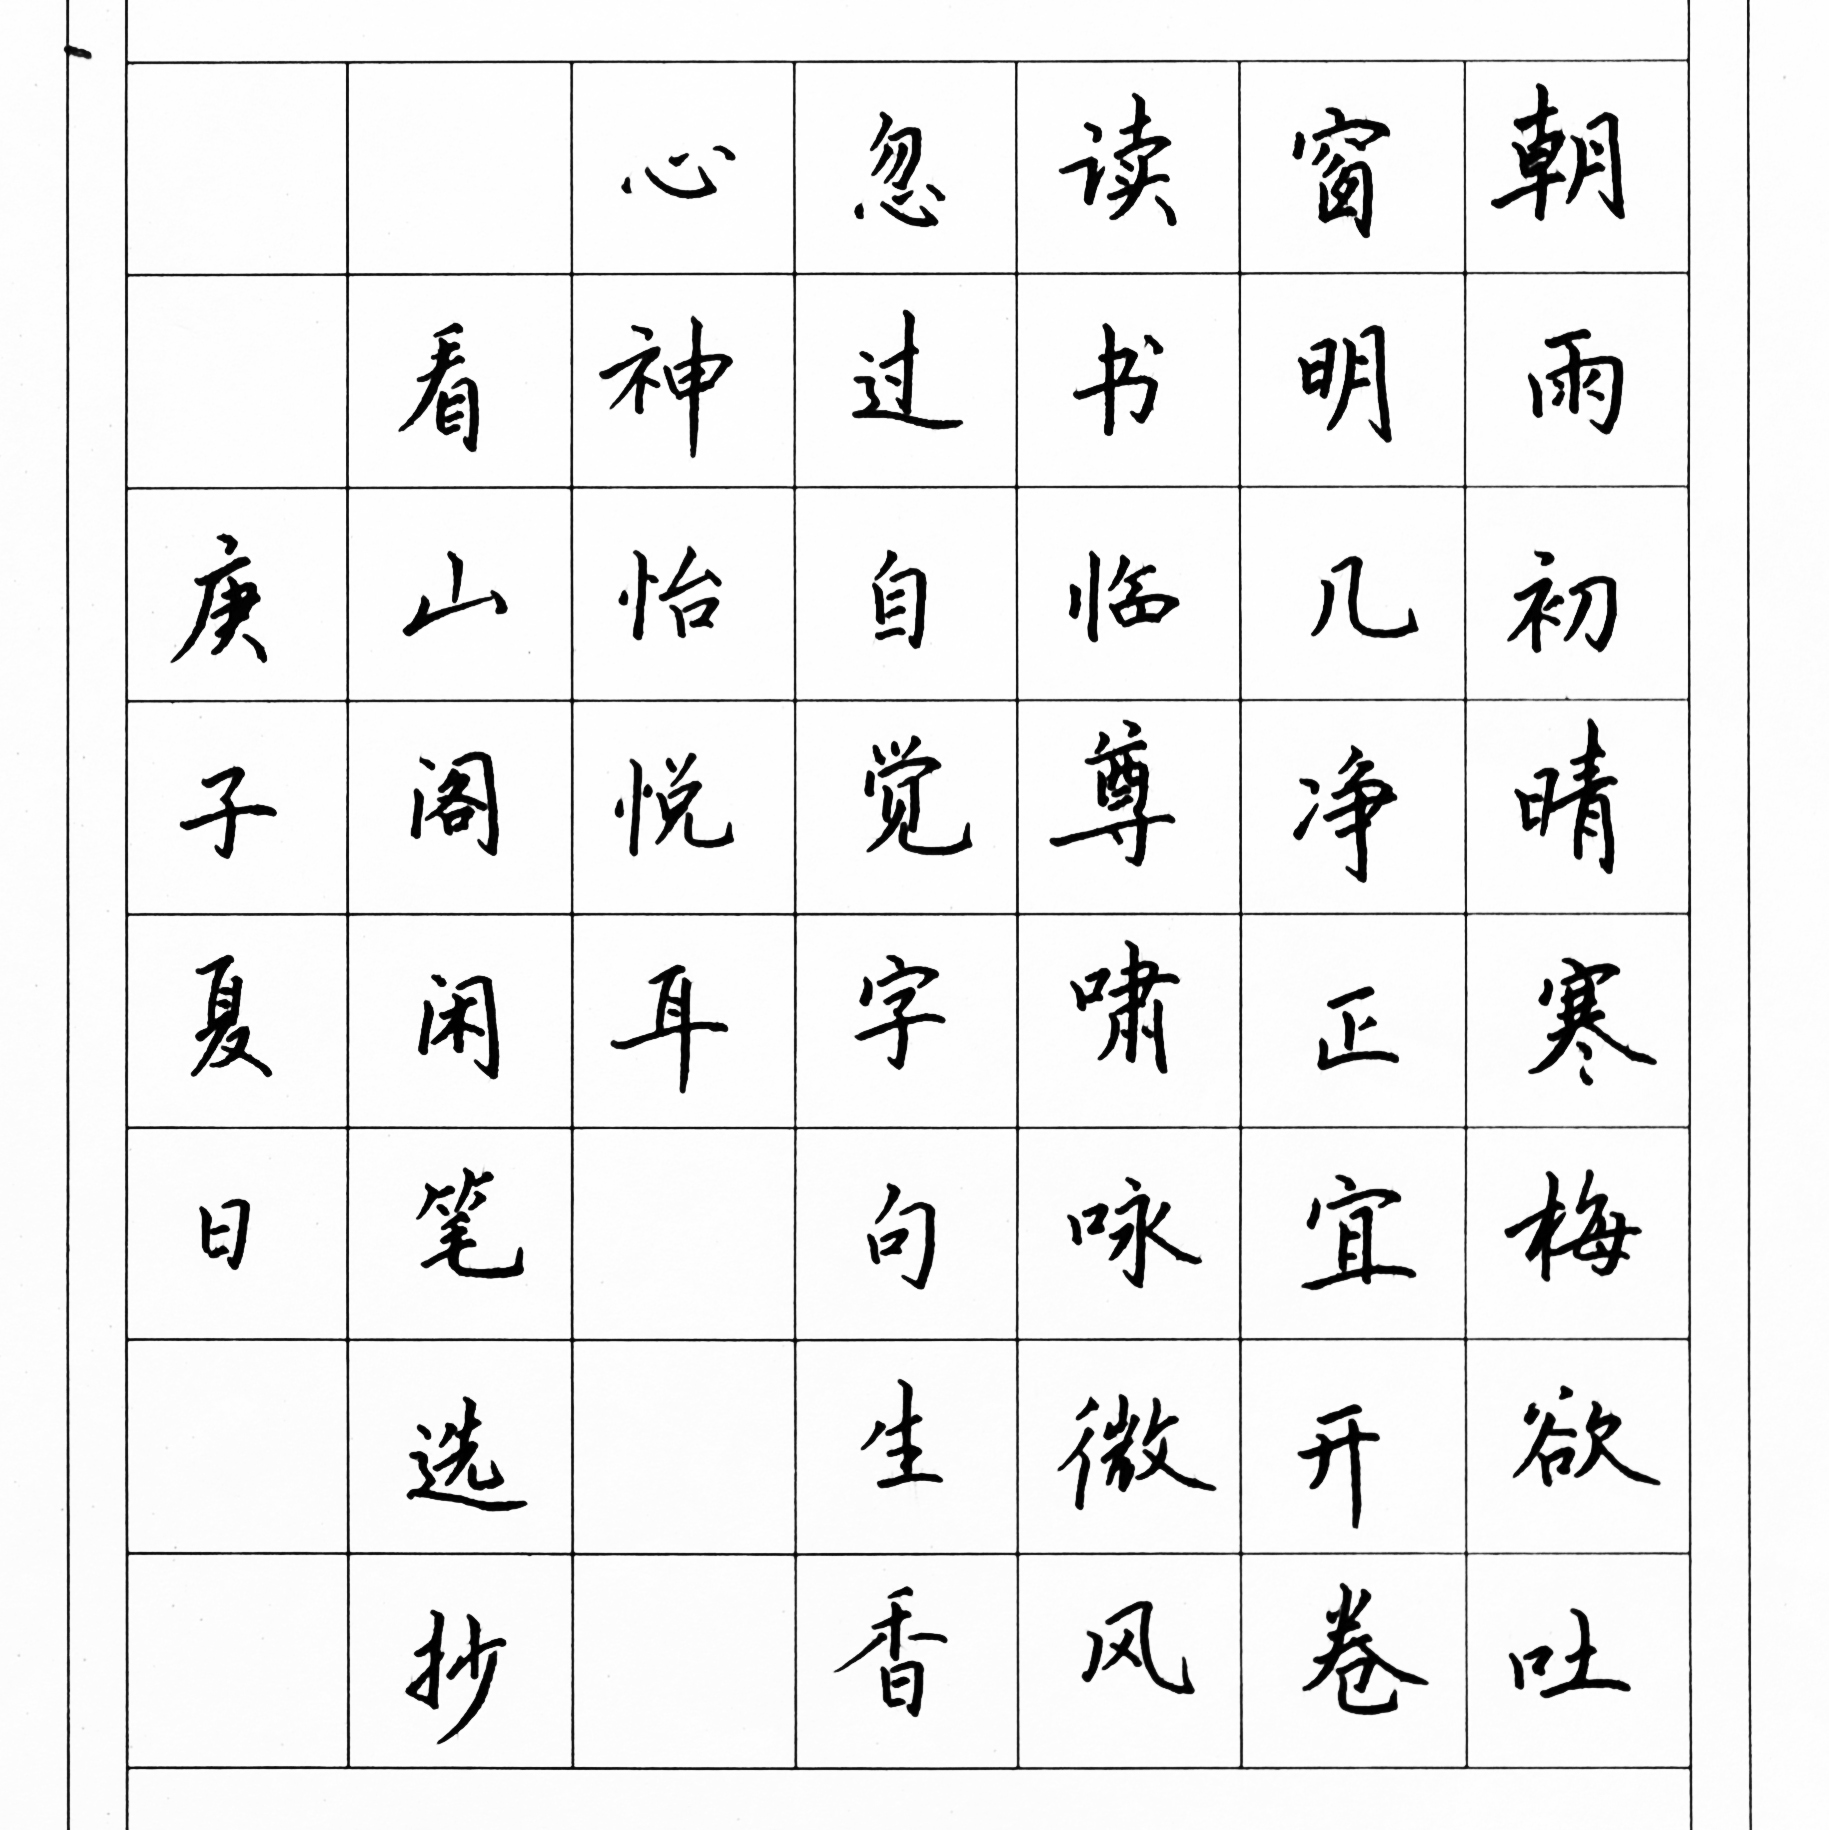 朝雨初晴寒梅欲吐
窗明几净正宜开卷
读书临尊啸咏微风
忽过自觉字句生香
心神怡悦耳
看山阁闲笔选抄
庚子夏日